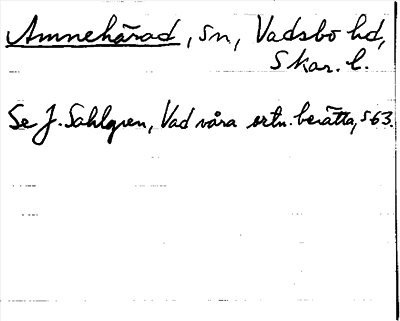 Amnehärad, sn, Vadsbo hd,
Skar. l.
Se J. Sahlgren, Vad våra ortn. berätta, s 63.